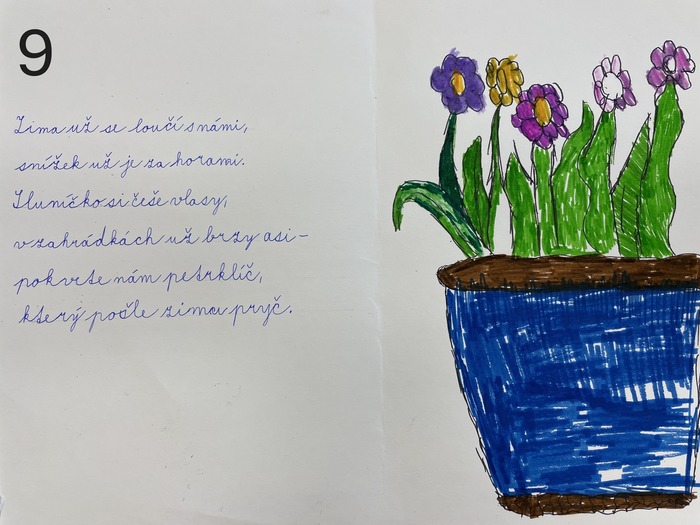 9
Zima už se loučí s námi,
snížek už je za horami.
Sluníčko si češe vlasy,
v zahrádkách už brzy asi–
pokvrte nám petrklíč,
který pošle zimu pryč.